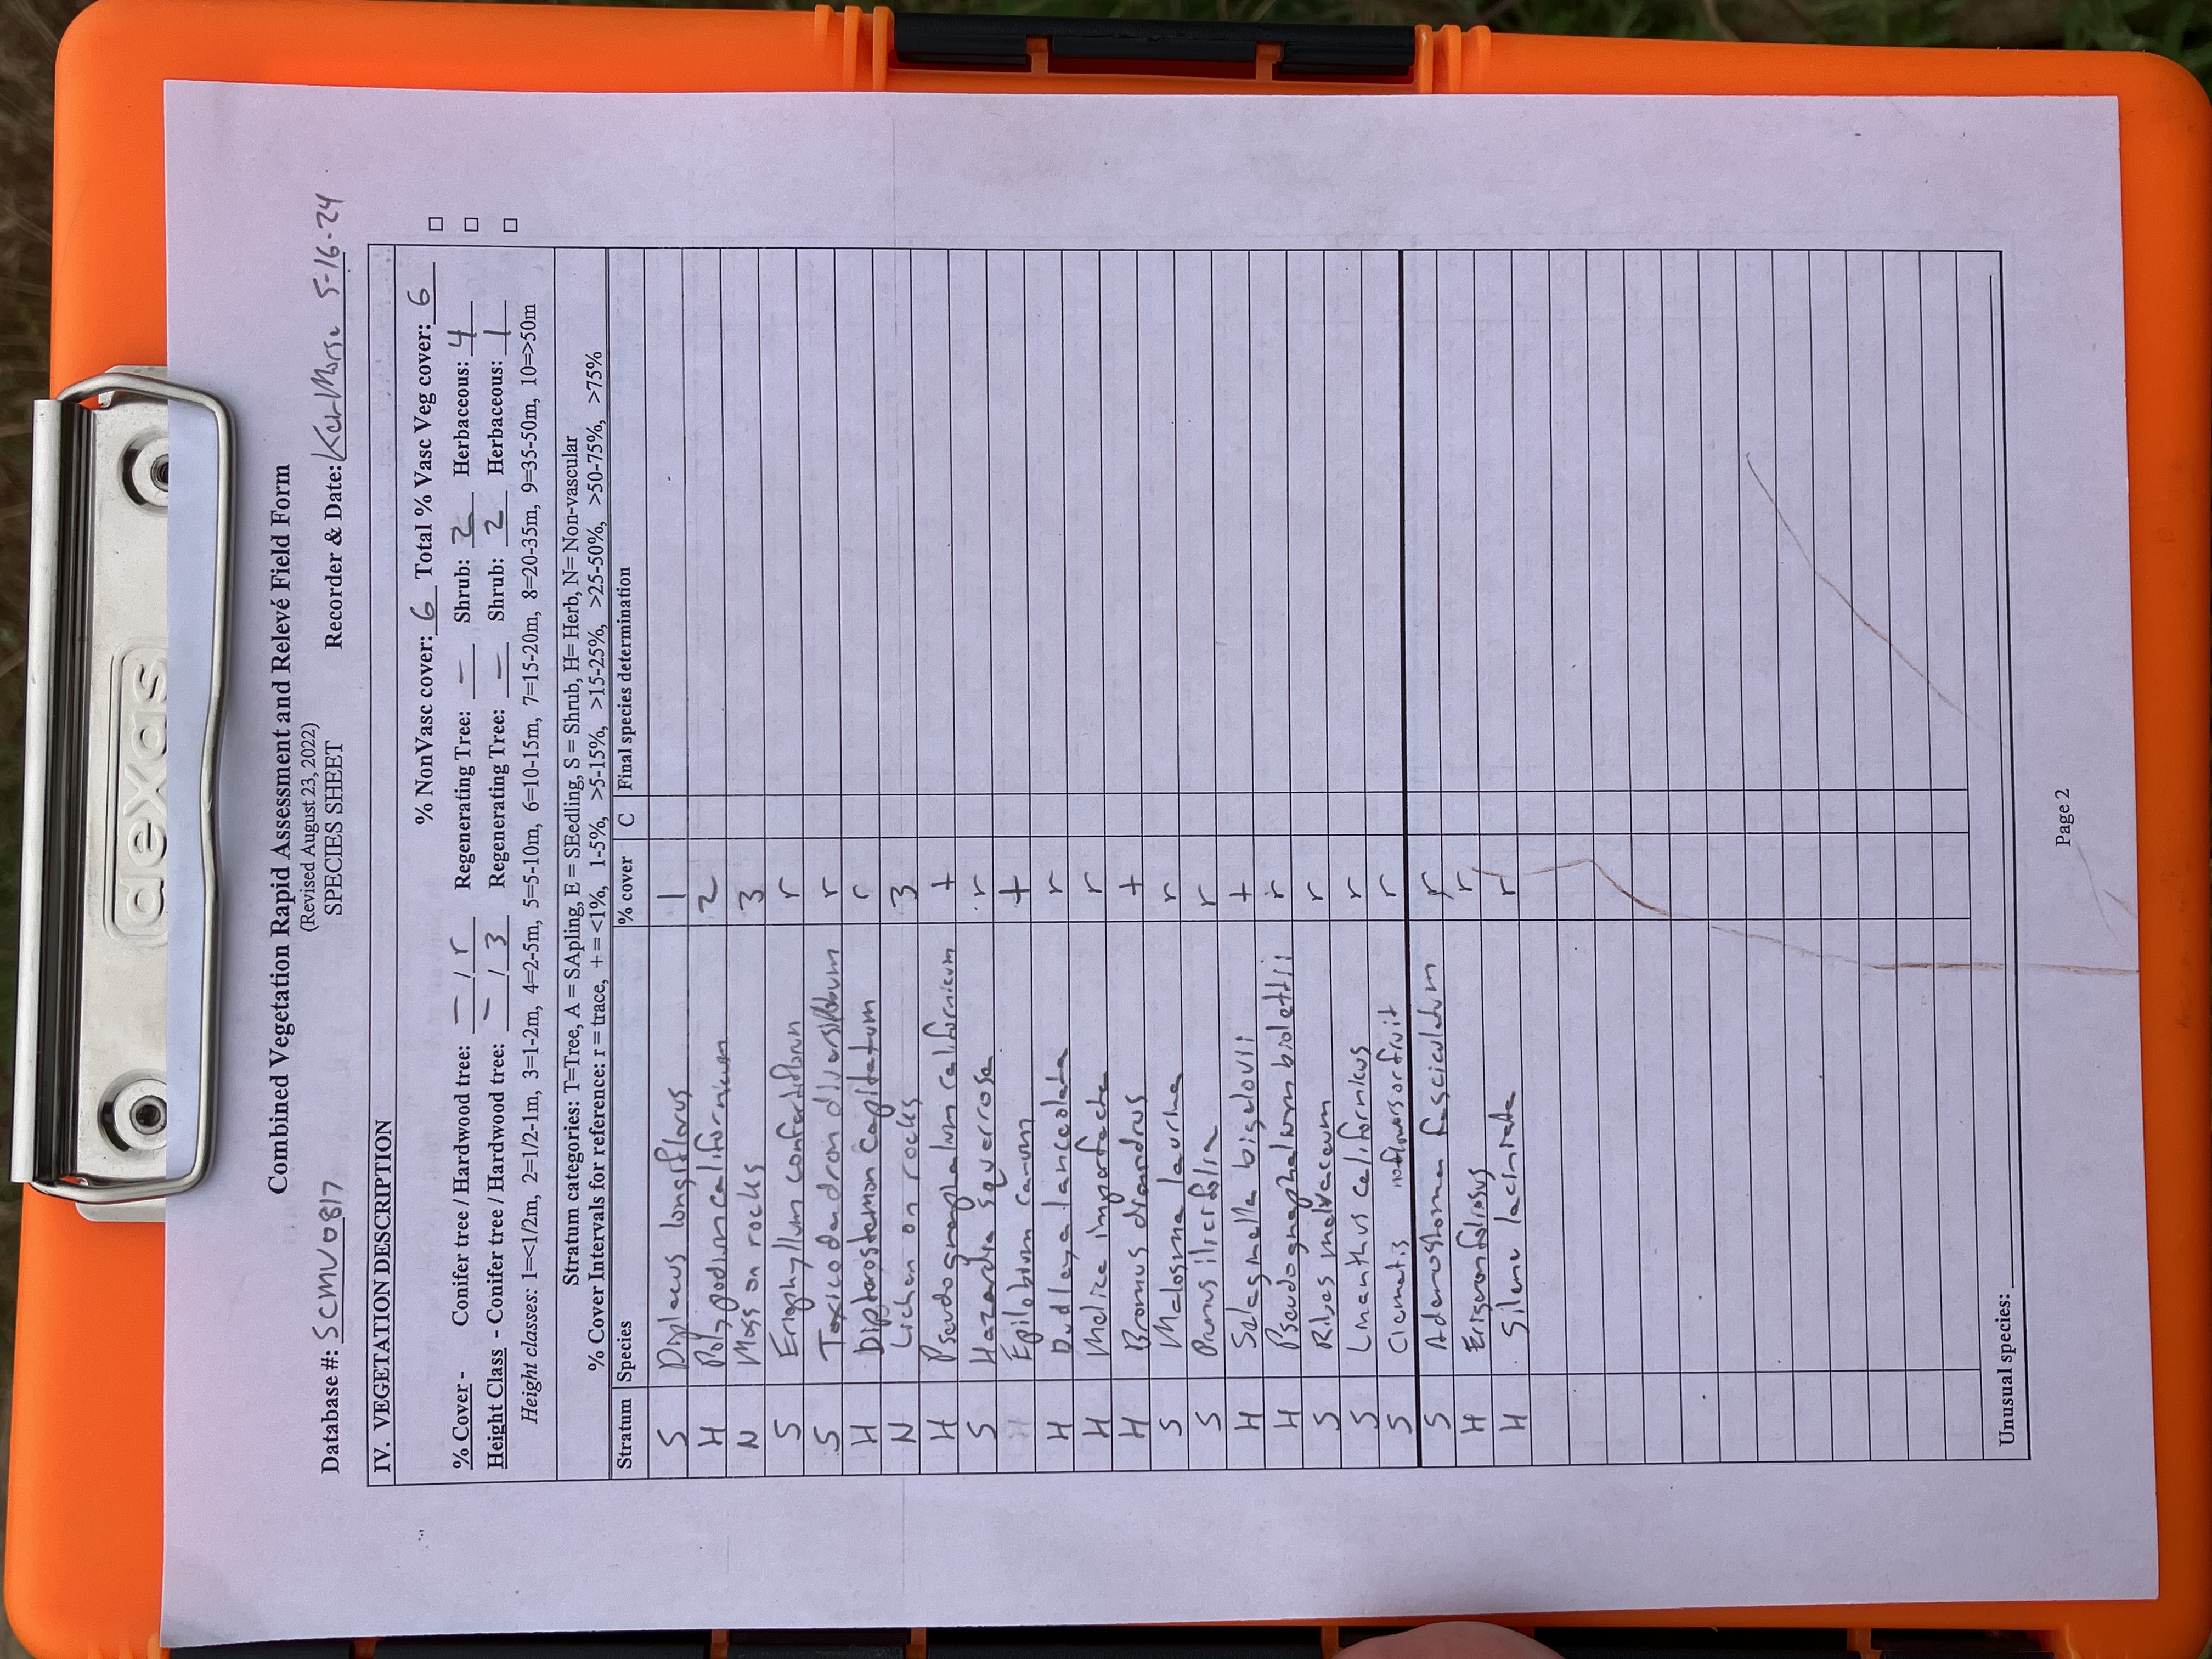 dexas
Combined Vegetation Rapid Assessment and Relevé Field Form
(Revised August 23, 2022)
SPECIES SHEET
Database #: SCMV0817 Recorder & Date: Karl Morse 5-16-24
IV. VEGETATION DESCRIPTION
% NonVasc cover: 6 Total % Vasc Veg cover: 6
% Cover - Conifer tree / Hardwood tree: — / r Regenerating Tree: — Shrub: 2 Herbaceous: 4
Height Class - Conifer tree / Hardwood tree: — / 3 Regenerating Tree: — Shrub: 2 Herbaceous: 1
Height classes: 1=<1/2m, 2=1/2-1m, 3=1-2m, 4=2-5m, 5=5-10m, 6=10-15m, 7=15-20m, 8=20-35m, 9=35-50m, 10=>50m
Stratum categories: T=Tree, A = SApling, E = SEedling, S = Shrub, H= Herb, N= Non-vascular
% Cover Intervals for reference: r = trace, + = <1%, 1-5%, >5-15%, >15-25%, >25-50%, >50-75%, >75%
Stratum Species % cover C Final species determination
S Diplacus longiflorus 1
H Polypodium californicum 2
N Moss on rocks 3
S Eriophyllum confertiflorum r
S Toxicodendron diversilobum r
H Dipterostemon capitatum r
N Lichen on rocks 3
H Pseudognaphalium californicum +
S Hazardia squarrosa r
H Epilobium canum +
H Dudleya lanceolata r
H Melica imperfecta r
H Bromus diandrus +
S Malosma laurina r
S Prunus ilicifolia r
H Selaginella bigelovii +
H Pseudognaphalium biolettii r
S Ribes malvaceum r
S Linanthus californicus r
S Clematis no flowers or fruit r
S Adenostoma fasciculatum r
H Erigeron foliosus r
H Silene laciniata r
Unusual species:
Page 2